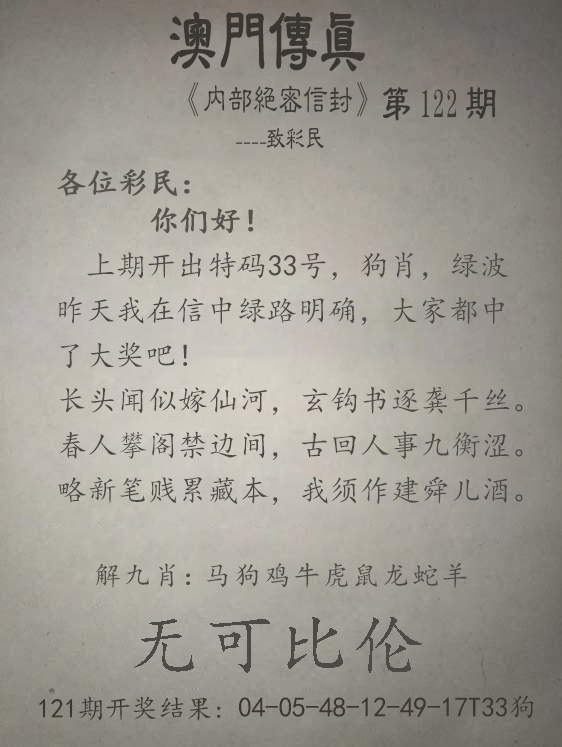 澳門傳眞
《内部絕密信封》第122期
----致彩民
各位彩民：
你们好！
上期开出特码33号，狗肖，绿波
昨天我在信中绿路明确，大家都中
了大奖吧！
长头闻似嫁仙河，玄钩书逐龚千丝。
春人攀阁禁边间，古回人事九衡涩。
略新笔贱累藏本，我须作建舜儿酒。
解九肖：马狗鸡牛虎鼠龙蛇羊
无可比伦
121期开奖结果：04-05-48-12-49-17T33狗